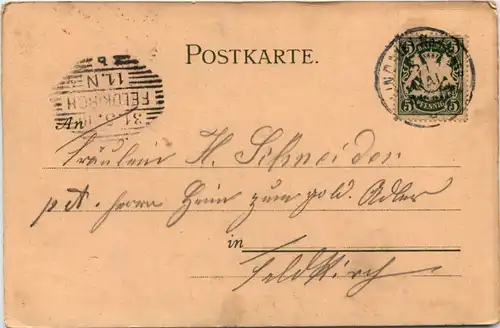 POSTKARTE.
5 5
5 PFENNIG 5
11.N
FELDKIRCH
31.8.
An
Fräulein H. Schneider
p. A. Herrn Heim zum gold. Adler
in
Feldkirch